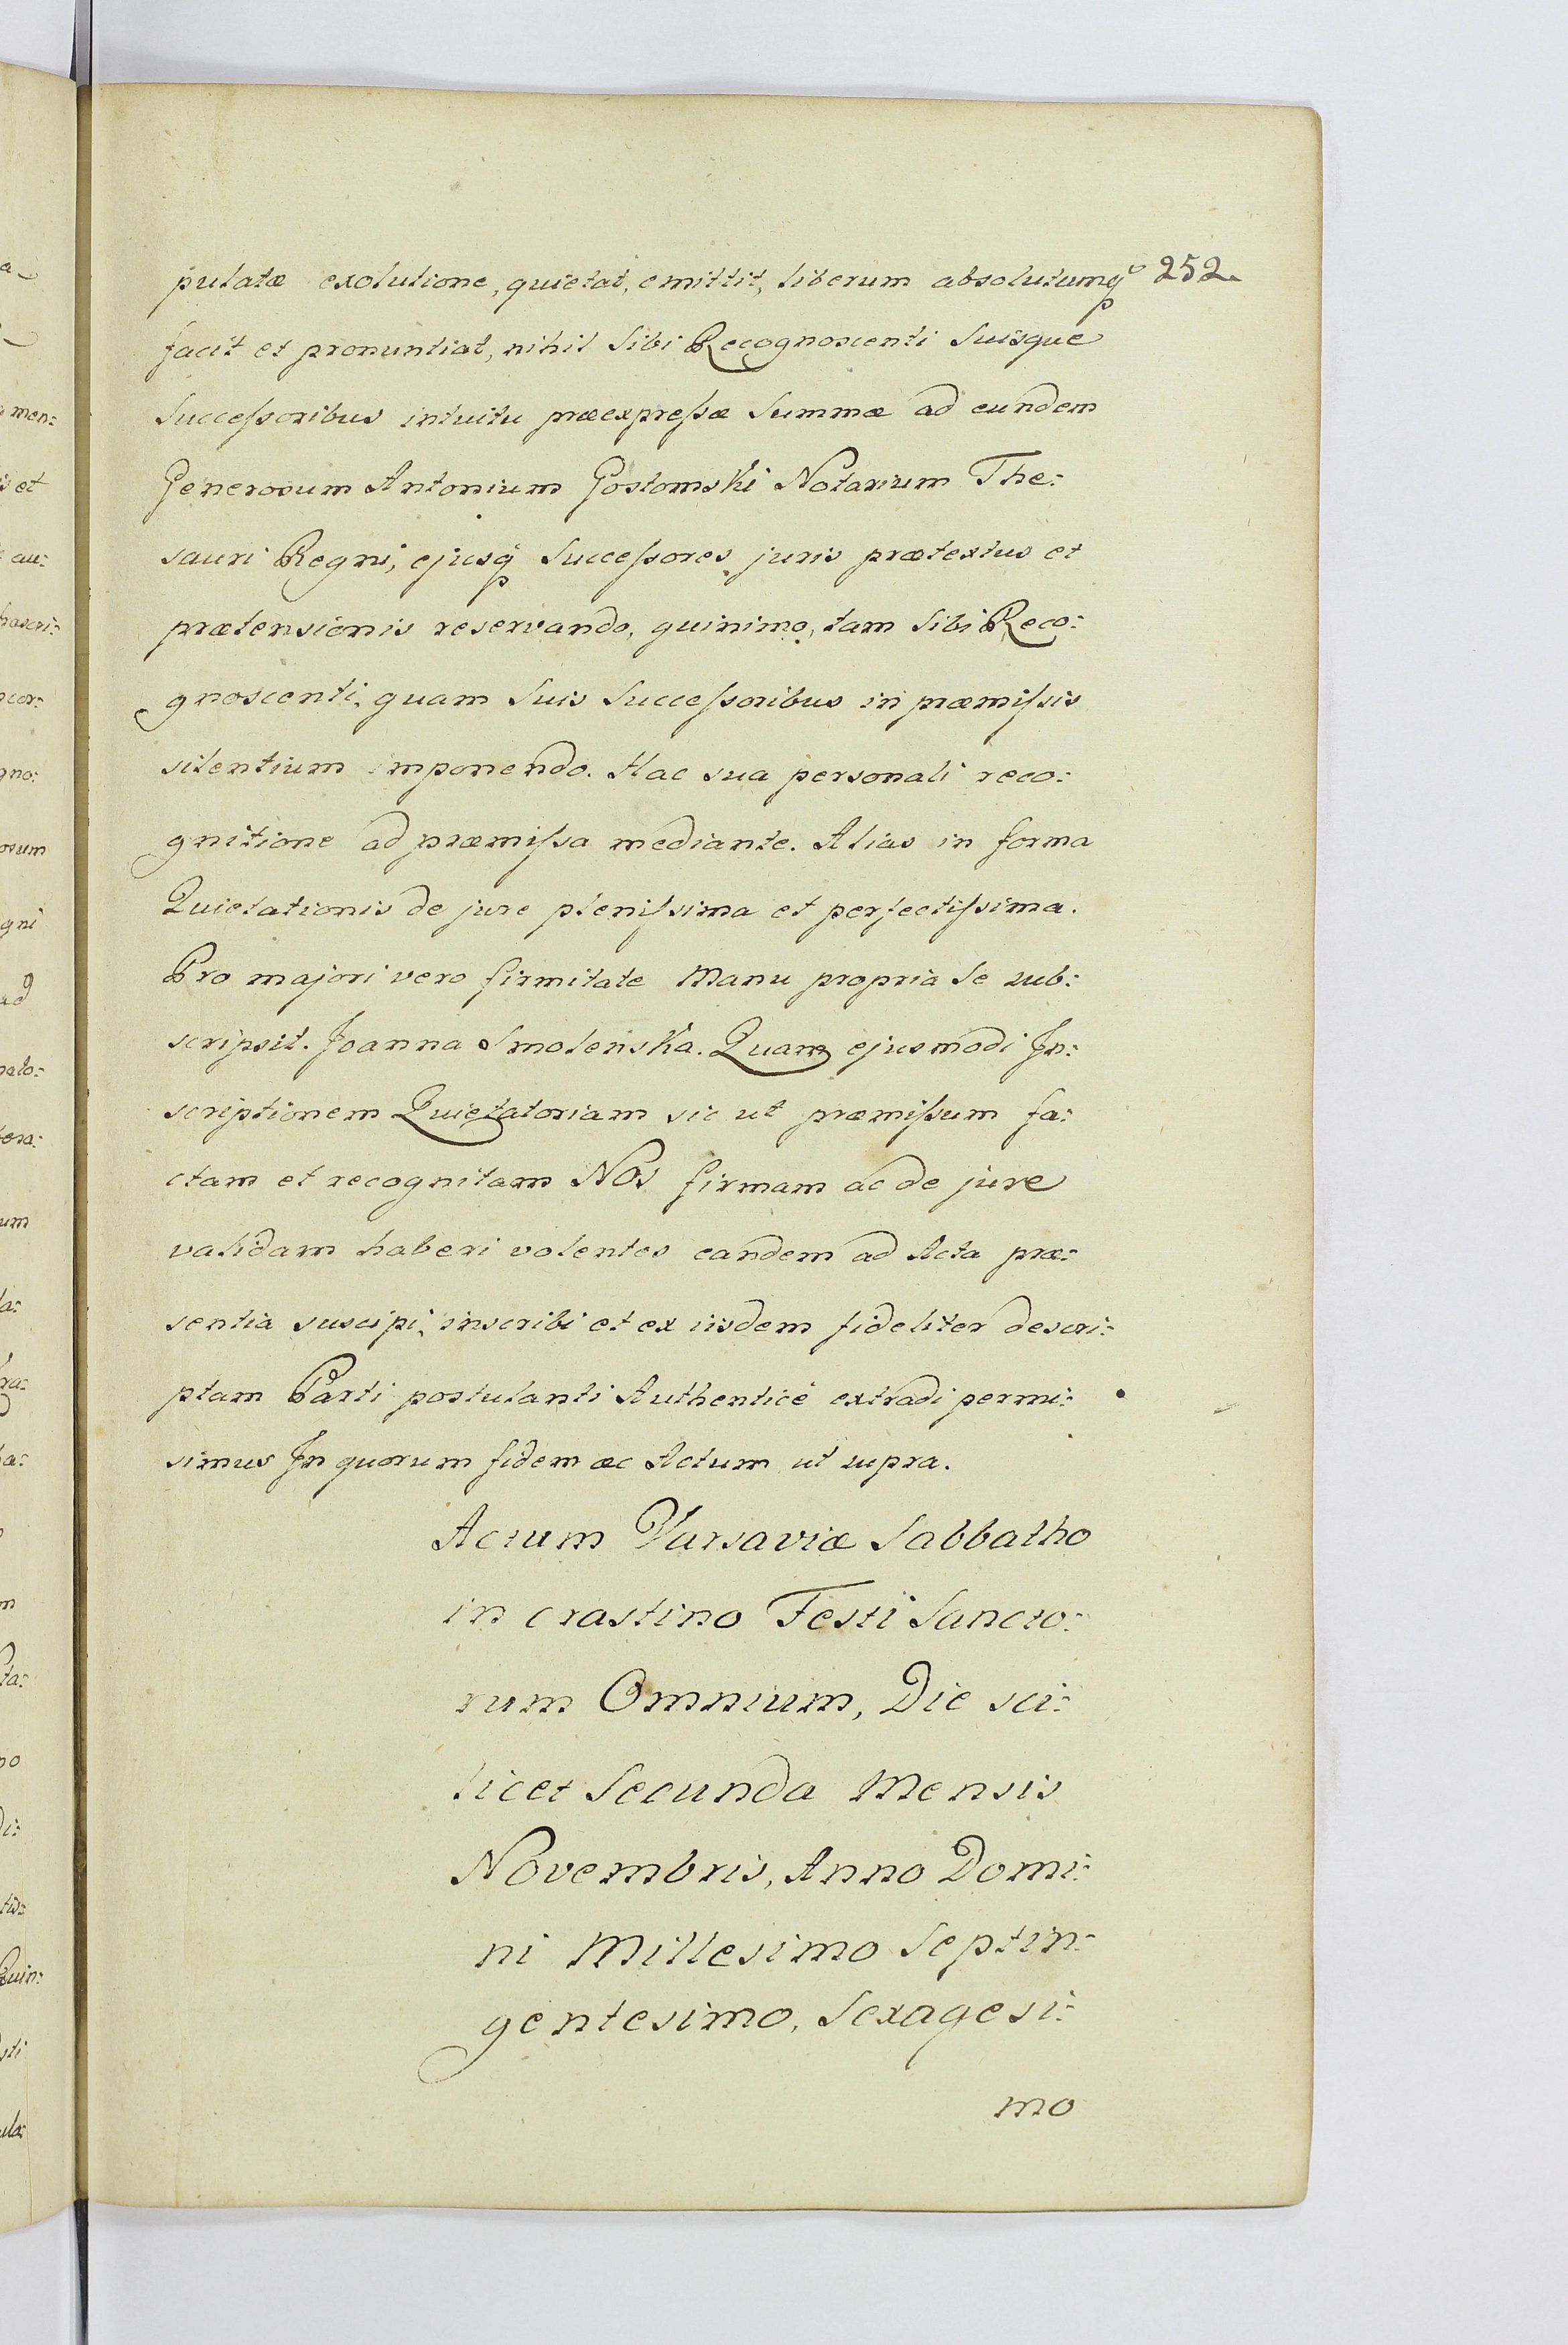 putatæ exolutione, quietat, emittit, liberum absolutumq̃ 252.
facit et pronuntiat, nihil Sibi Recognoscenti Suisque
Successoribus intuitu præexpressæ Summæ ad eundem
Generosum Antonium Gostomski Notarium The:
sauri Regni, ejusq̃ Successores juris prætextus et
prætensionis reservando, quinimo, tam Sibi Reco:
gnoscenti, quam Suis Successoribus in præmissis
silentium imponendo. Hac sua personali reco:
gnitione ad præmissa mediante. Alias in forma
Quietationis de jure plenissima et perfectissima.
Pro majori vero firmitate Manu propria Se sub:
scripsit. Joanna Smolenska. Quam ejusmodi In:
scriptionem Quietatoriam sic ut præmissum fa:
ctam et recognitam Nos firmam ac de jure
validam haberi volentes eandem ad Acta præ:
sentia suscipi, inscribi et ex iisdem fideliter descri:
ptam Parti postulanti Authenticè extradi permi:
simus In quorum fidem ac Actum ut supra.
Actum Varsaviæ Sabbatho
in crastino Festi Sancto:
rum Omnium, Die sci:
licet Secunda Mensis
Novembris, Anno Domi:
ni Millesimo Septin:
gentesimo, Sexagesi:
mo